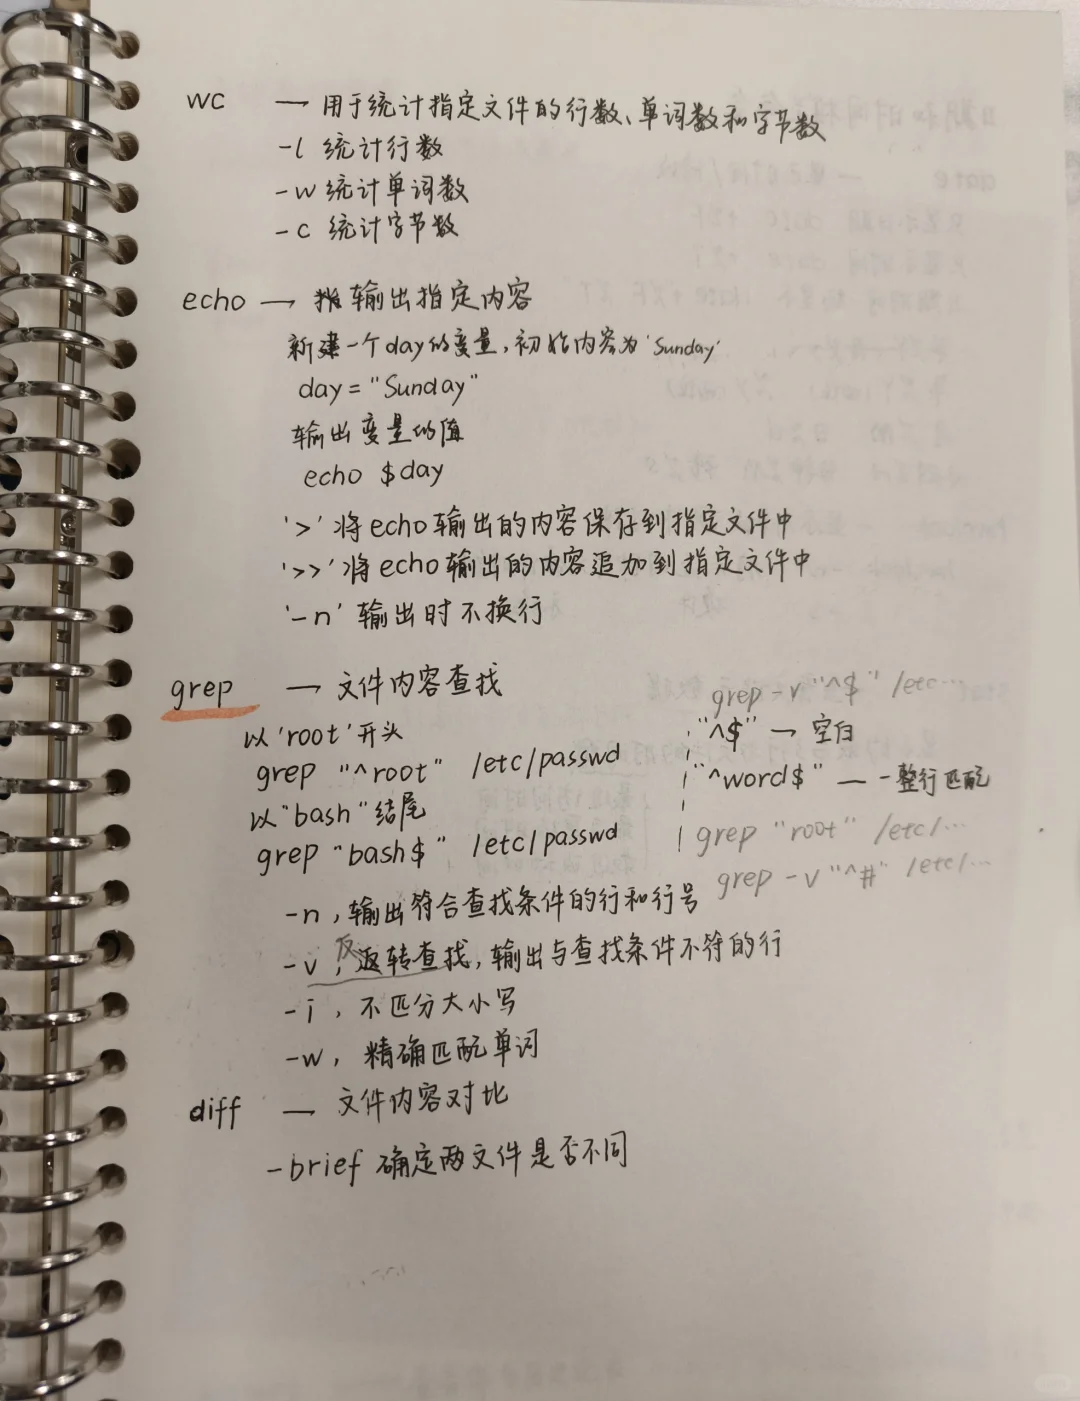 wc — 用于统计指定文件的行数、单词数和字节数
-l 统计行数
-w 统计单词数
-c 统计字节数
echo — 输出指定内容
新建一个day的变量,初始内容为'Sunday'
day="Sunday"
输出变量的值
echo $day
'>'将echo输出的内容保存到指定文件中
'>>'将echo输出的内容追加到指定文件中
'-n'输出时不换行
grep — 文件内容查找
以'root'开头
grep "^root" /etc/passwd
以"bash"结尾
grep "bash$" /etc/passwd
grep -v "^$" /etc...
"^$" — 空白
"^word$" — 一整行匹配
grep "root" /etc/...
grep -v "^#" /etc/...
-n,输出符合查找条件的行和行号
反
-v,返转查找,输出与查找条件不符的行
-i,不匹分大小写
-w,精确匹配单词
diff — 文件内容对比
-brief 确定两文件是否不同